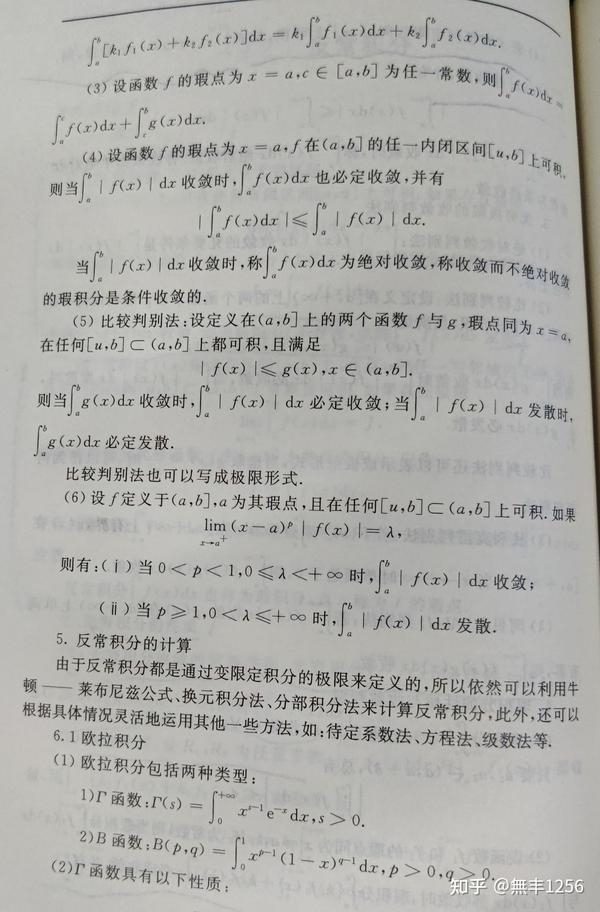 ∫_a^b [k₁f₁(x)+k₂f₂(x)]dx = k₁∫_a^b f₁(x)dx+k₂∫_a^b f₂(x)dx.
(3) 设函数 f 的瑕点为 x = a,c ∈ [a,b] 为任一常数,则∫_a^b f(x)dx =
∫_a^c f(x)dx+∫_c^b g(x)dx.
(4) 设函数 f 的瑕点为 x = a,f 在(a,b] 的任一内闭区间[u,b] 上可积,
则当∫_a^b | f(x) | dx 收敛时,∫_a^b f(x)dx 也必定收敛,并有
| ∫_a^b f(x)dx |≤∫_a^b | f(x) | dx.
当∫_a^b | f(x) | dx 收敛时,称∫_a^b f(x)dx 为绝对收敛,称收敛而不绝对收敛
的瑕积分是条件收敛的.
(5) 比较判别法:设定义在(a,b] 上的两个函数 f 与 g,瑕点同为 x = a,
在任何[u,b] ⊂ (a,b] 上都可积,且满足
| f(x) |≤ g(x),x ∈ (a,b].
则当∫_a^b g(x)dx 收敛时,∫_a^b | f(x) | dx 必定收敛;当∫_a^b | f(x) | dx 发散时,
∫_a^b g(x)dx 必定发散.
比较判别法也可以写成极限形式.
(6) 设 f 定义于(a,b],a 为其瑕点,且在任何[u,b]⊂(a,b] 上可积. 如果
lim_{x→a⁺} (x−a)^p | f(x) |= λ,
则有:(ⅰ) 当 0 < p < 1,0 ≤ λ <+∞ 时,∫_a^b | f(x) | dx 收敛;
(ⅱ) 当 p ≥ 1,0 < λ ≤+∞ 时,∫_a^b | f(x) | dx 发散.
5. 反常积分的计算
由于反常积分都是通过变限定积分的极限来定义的,所以依然可以利用牛
顿 —— 莱布尼兹公式、换元积分法、分部积分法来计算反常积分,此外,还可以
根据具体情况灵活地运用其他一些方法,如:待定系数法、方程法、级数法等.
6.1 欧拉积分
(1) 欧拉积分包括两种类型:
1)Γ 函数:Γ(s) = ∫_0^{+∞} x^{s−1} e^{−x} dx,s > 0.
2)B 函数:B(p,q) = ∫_0^1 x^{p−1} (1−x)^{q−1} dx,p > 0,q > 0.
(2)Γ 函数具有以下性质:
知乎 @無丰1256